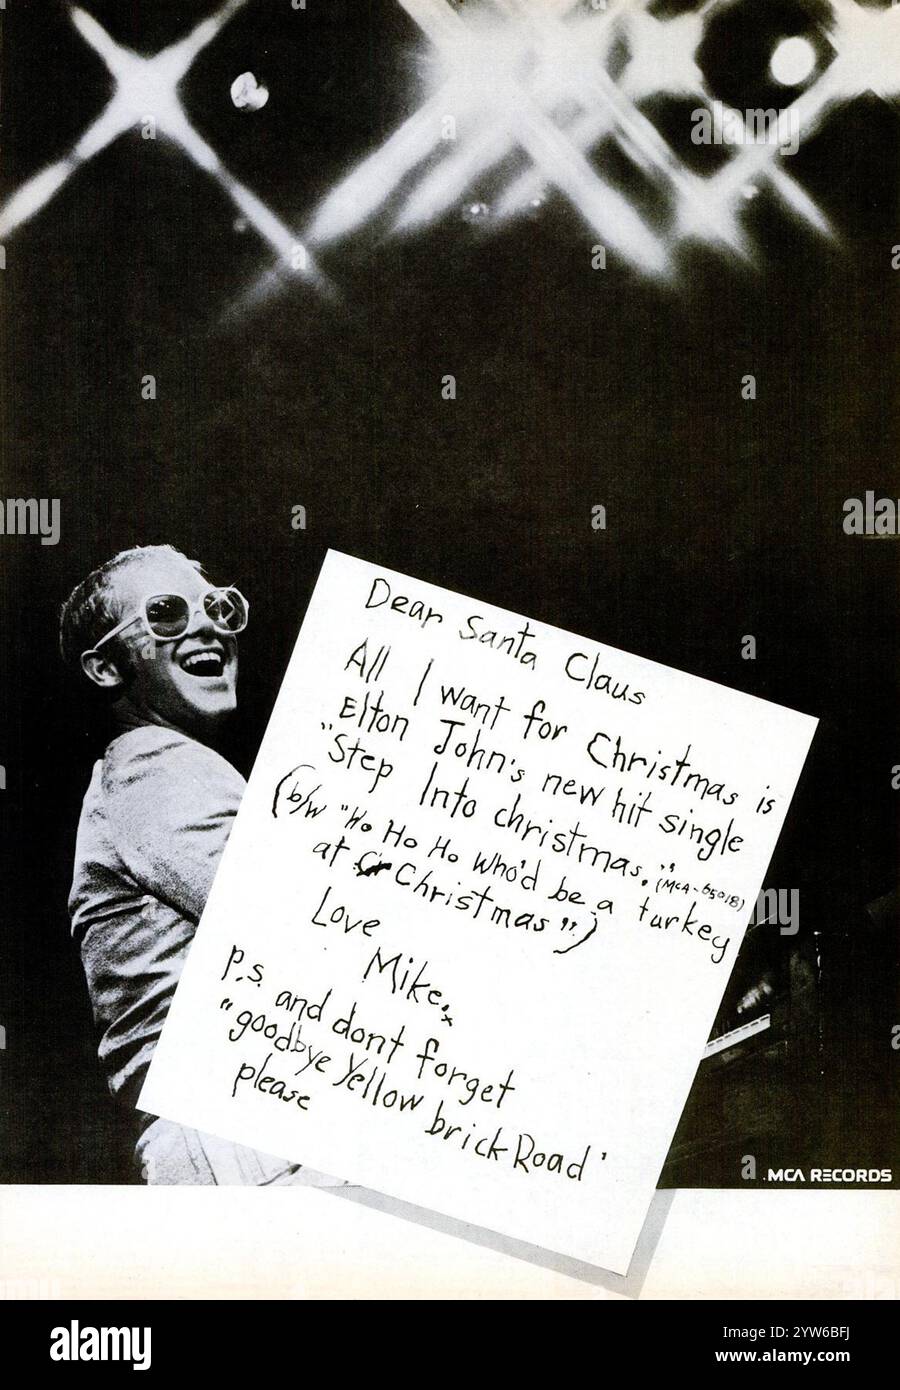 Dear Santa Claus
All I want for Christmas is
Elton John's new hit single
"Step Into christmas." (MCA-65018)
(b/w "Ho Ho Ho who'd be a turkey
at Christmas")
Love
Mike.x
p.s. and dont forget
"goodbye Yellow brick Road'
please
.MCA RECORDS
a
alamy
Image ID: 2YW6BFJ
www.alamy.com